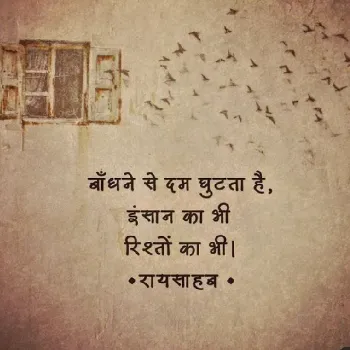 बाँधने से दम घुटता है,
इंसान का भी
रिश्तों का भी।
•रायसाहब •